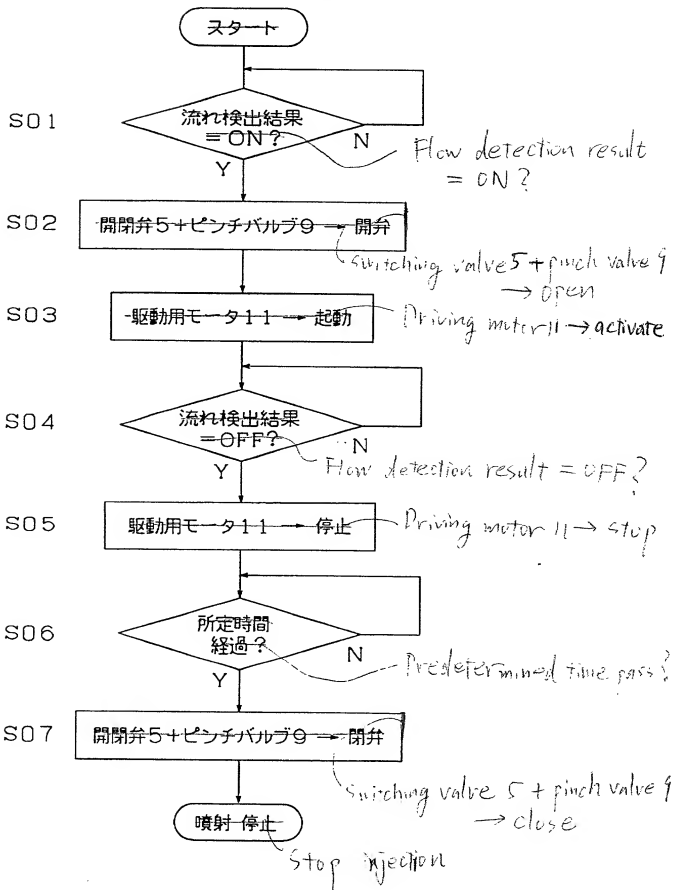 スタート
S01
流れ検出結果
=ON?
N
Y
Flow detection result
= ON?
S02
開閉弁5+ピンチバルブ9 → 開弁
switching valve 5 + pinch valve 9
→ open
S03
駆動用モータ11 → 起動
Driving motor 11 → activate
S04
流れ検出結果
=OFF?
N
Y
Flow detection result = OFF?
S05
駆動用モータ11 → 停止
Driving motor 11 → stop
S06
所定時間
経過?
N
Y
Predetermined time pass?
S07
開閉弁5+ピンチバルブ9 → 閉弁
switching valve 5 + pinch valve 9
→ close
噴射 停止
Stop injection